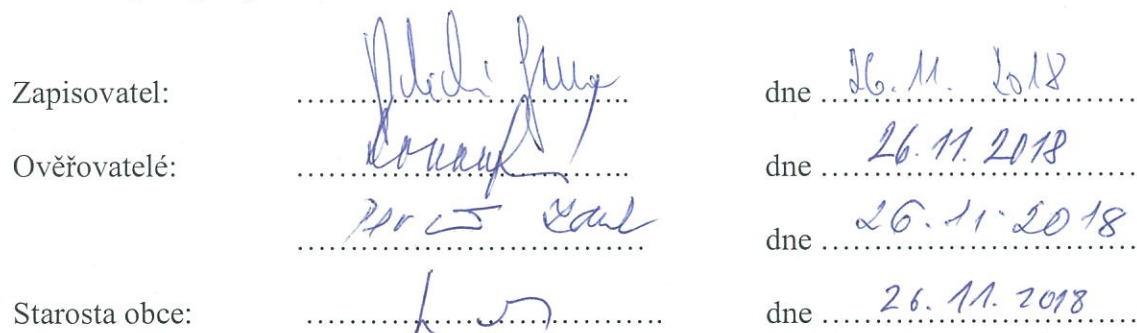 Zapisovatel: .......... dne 26. 11. 2018
Ověřovatelé: .......... dne 26. 11. 2018
.......... dne 26. 11. 2018
Starosta obce: .......... dne 26. 11. 2018